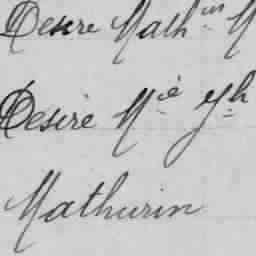 Desire Mathin M
Désiré Mie Yh
Mathurin